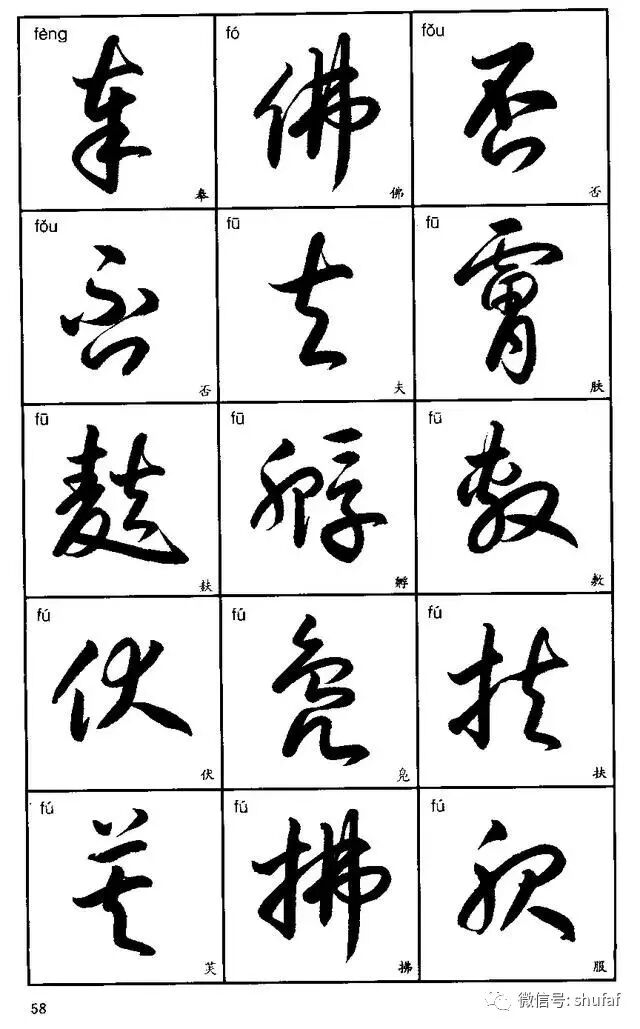 fèng
奉
奉
fó
佛
佛
fǒu
否
否
fǒu
否
否
fū
夫
夫
fū
膚
肤
fū
麩
麸
fū
孵
孵
fū
敷
敷
fú
伏
伏
fú
鳧
凫
fú
扶
扶
fú
芙
芙
fú
拂
拂
fú
服
服
58
微信号: shufaf